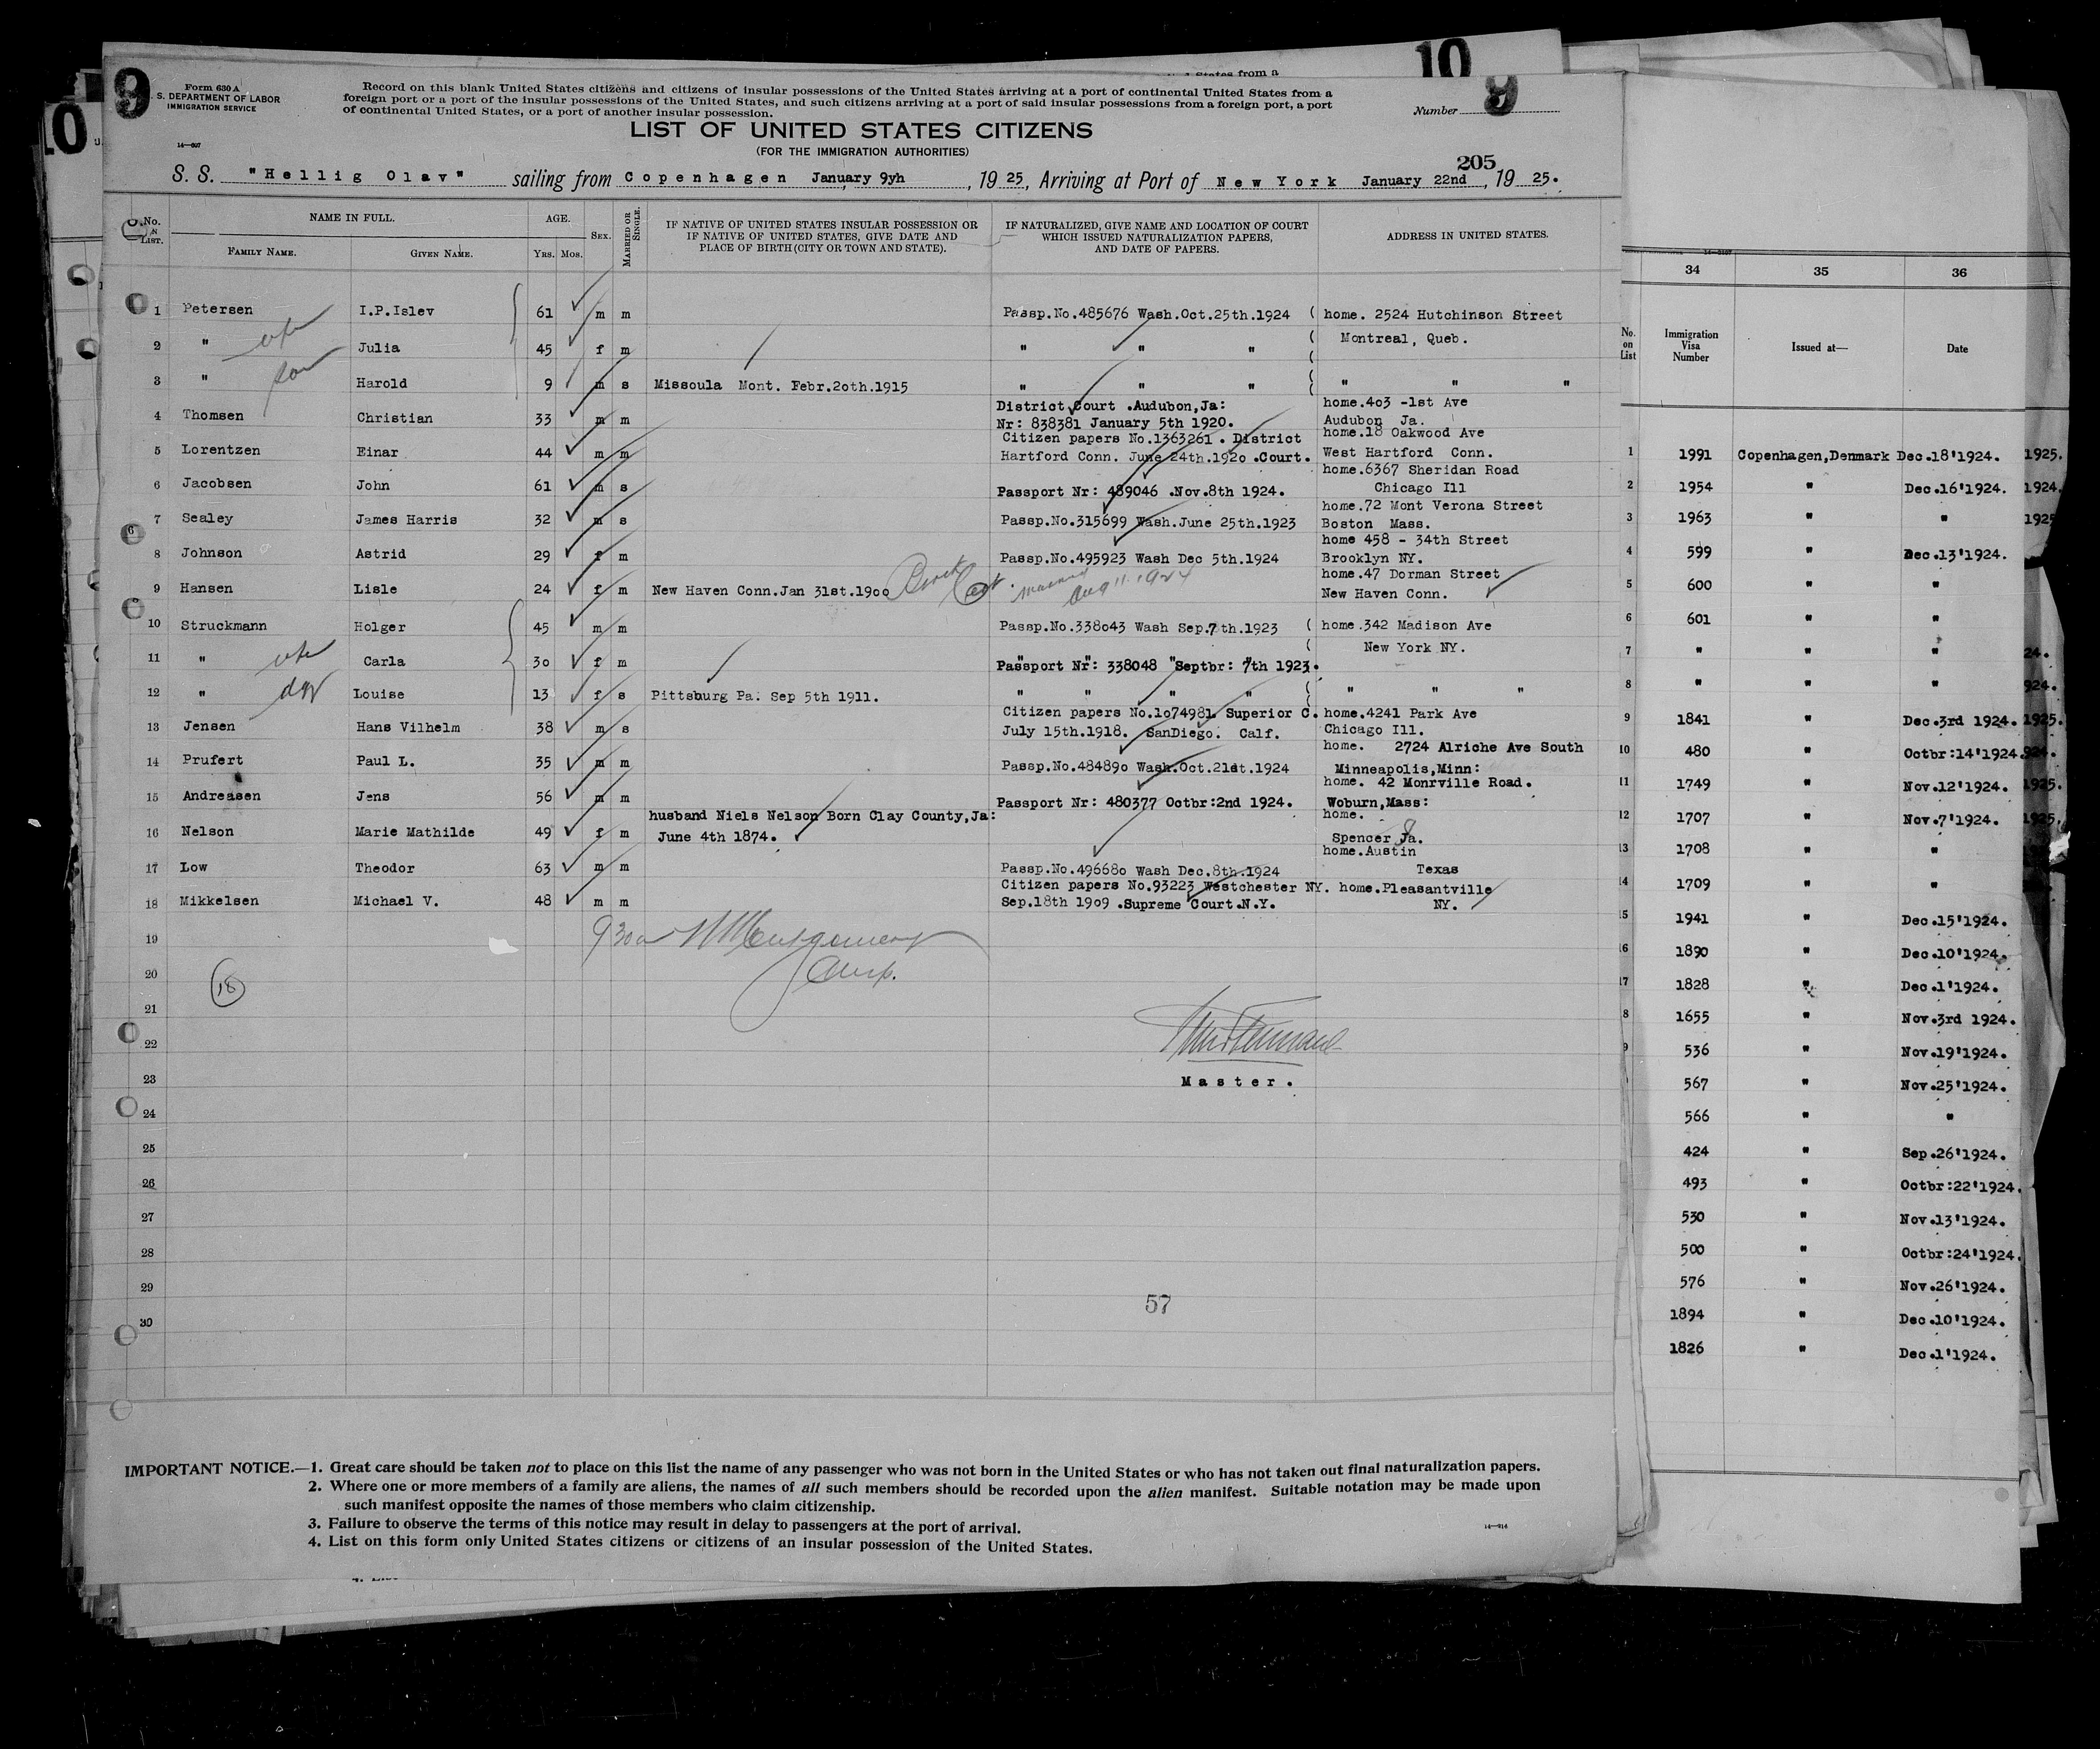 9
10
9
10
Form 630 A
S. DEPARTMENT OF LABOR
IMMIGRATION SERVICE
14—607
Record on this blank United States citizens and citizens of insular possessions of the United States arriving at a port of continental United States from a
foreign port or a port of the insular possessions of the United States, and such citizens arriving at a port of said insular possessions from a foreign port, a port
of continental United States, or a port of another insular possession.
Number
LIST OF UNITED STATES CITIZENS
(FOR THE IMMIGRATION AUTHORITIES)
205
S. S. "Hellig Olav" sailing from Copenhagen January 9yh, 19 25, Arriving at Port of New York January 22nd, 19 25.
No. LIST.
NAME IN FULL.
FAMILY NAME. GIVEN NAME.
AGE.
YRS. MOS.
SEX.
MARRIED OR SINGLE.
IF NATIVE OF UNITED STATES INSULAR POSSESSION OR
IF NATIVE OF UNITED STATES, GIVE DATE AND
PLACE OF BIRTH (CITY OR TOWN AND STATE).
IF NATURALIZED, GIVE NAME AND LOCATION OF COURT
WHICH ISSUED NATURALIZATION PAPERS,
AND DATE OF PAPERS.
ADDRESS IN UNITED STATES.
1 Petersen I.P.Islev 61 m m Passp.No.485676 Wash.Oct.25th.1924 ( home. 2524 Hutchinson Street
2 " wife Julia 45 f m " " " ( Montreal, Queb.
3 " son Harold 9 m s Missoula Mont. Febr.2oth.1915 " " " ( " " "
4 Thomsen Christian 33 m m District Court .Audubon,Ja: home.4o3 -1st Ave
Nr: 838381 January 5th 1920. Audubon Ja.
5 Lorentzen Einar 44 m m Citizen papers No.1363261 . District home.18 Oakwood Ave
Hartford Conn. June 24th.192o .Court. West Hartford Conn.
6 Jacobsen John 61 m s Passport Nr: 489046 .Nov.8th 1924. home.6367 Sheridan Road
Chicago Ill
7 Sealey James Harris 32 m s Passp.No.315699 Wash.June 25th.1923 home.72 Mont Verona Street
Boston Mass.
8 Johnson Astrid 29 f m Passp.No.495923 Wash Dec 5th.1924 home 458 - 34th Street
Brooklyn NY.
9 Hansen Lisle 24 f m New Haven Conn.Jan 31st.19oo Birth Cert. married Aug 11. 1924 home.47 Dorman Street
New Haven Conn.
10 Struckmann Holger 45 m m Passp.No.338o43 Wash Sep.7th.1923 ( home.342 Madison Ave
11 " wife Carla 3o f m Passport Nr: 338048 Septbr: 7th 1923. ( New York NY.
12 " dgr Louise 13 f s Pittsburg Pa. Sep 5th 1911. " " " " ( " " "
13 Jensen Hans Vilhelm 38 m s Citizen papers No.1o74981. Superior C. home.4241 Park Ave
July 15th.1918. SanDiego. Calf. Chicago Ill.
14 Prufert Paul L. 35 m m Passp.No.48489o Wash.Oct.21dt.1924 home. 2724 Alriche Ave South
Minneapolis,Minn:
15 Andreasen Jens 56 m m Passport Nr: 480377 Octbr:2nd 1924. home. 42 Monrville Road.
Woburn,Mass:
16 Nelson Marie Mathilde 49 f m husband Niels Nelson Born Clay County,Ja: home.
June 4th 1874. Spencer Ja.
17 Low Theodor 63 m m Passp.No.49668o Wash Dec.8th.1924 home.Austin
Texas
18 Mikkelsen Michael V. 48 m m Citizen papers No.93223 Westchester NY. home.Pleasantville
Sep.18th 19o9 .Supreme Court.N.Y. NY.
19
930a Montgomery
20
Insp.
18
21
22
23
Master.
24
25
26
27
28
29
57
30
IMPORTANT NOTICE.—1. Great care should be taken not to place on this list the name of any passenger who was not born in the United States or who has not taken out final naturalization papers.
2. Where one or more members of a family are aliens, the names of all such members should be recorded upon the alien manifest. Suitable notation may be made upon
such manifest opposite the names of those members who claim citizenship.
3. Failure to observe the terms of this notice may result in delay to passengers at the port of arrival.
4. List on this form only United States citizens or citizens of an insular possession of the United States.
14—214
34 35 36
No. on List
Immigration Visa Number
Issued at—
Date
1 1991 Copenhagen,Denmark Dec.18'1924. 1925.
2 1954 " Dec.16'1924. 1924.
3 1963 " " 1925
4 599 " Dec.13'1924.
5 600 " "
6 601 " "
7 " " " 24.
8 " " " 924.
9 1841 " Dec.3rd 1924. 1925.
10 480 " Octbr:14'1924. 924.
11 1749 " Nov.12'1924. 1925.
12 1707 " Nov.7'1924. 1925.
13 1708 " "
14 1709 " "
15 1941 " Dec.15'1924.
16 1890 " Dec.10'1924.
17 1828 " Dec.1'1924.
8 1655 " Nov.3rd 1924.
9 536 " Nov.19'1924.
567 " Nov.25'1924.
566 " "
424 " Sep.26'1924.
493 " Octbr:22'1924.
530 " Nov.13'1924.
500 " Octbr:24'1924.
576 " Nov.26'1924.
1894 " Dec.10'1924.
1826 " Dec.1'1924.